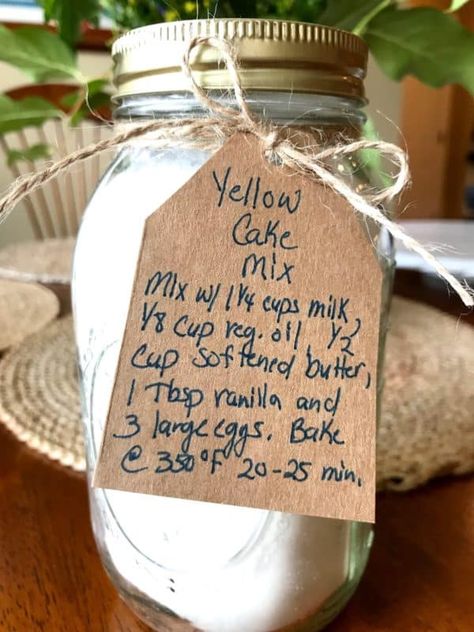 Yellow
Cake
Mix
Mix w/ 1 1/4 cups milk,
1/8 cup reg. oil 1/2
cup softened butter,
1 Tbsp vanilla and
3 large eggs. Bake
@ 350°F 20-25 min.